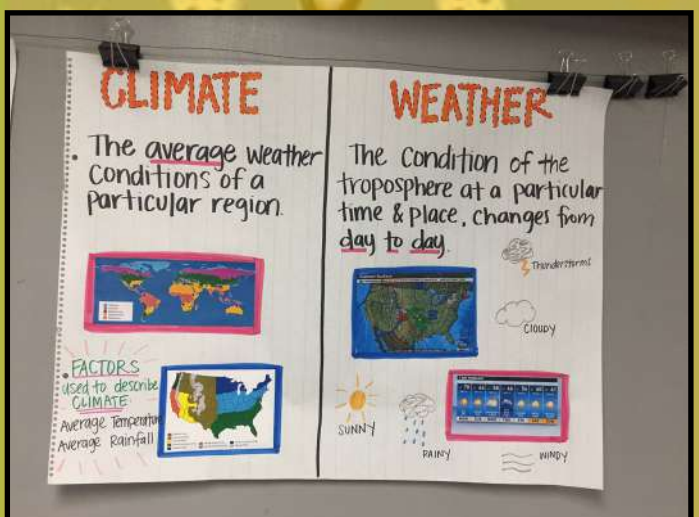 CLIMATE
The average weather
conditions of a
particular region.
FACTORS
used to describe
CLIMATE
Average Temperature
Average Rainfall
WEATHER
The condition of the
troposphere at a particular
time & place, changes from
day to day.
Thunderstorms
CLOUDY
SUNNY
RAINY
WINDY